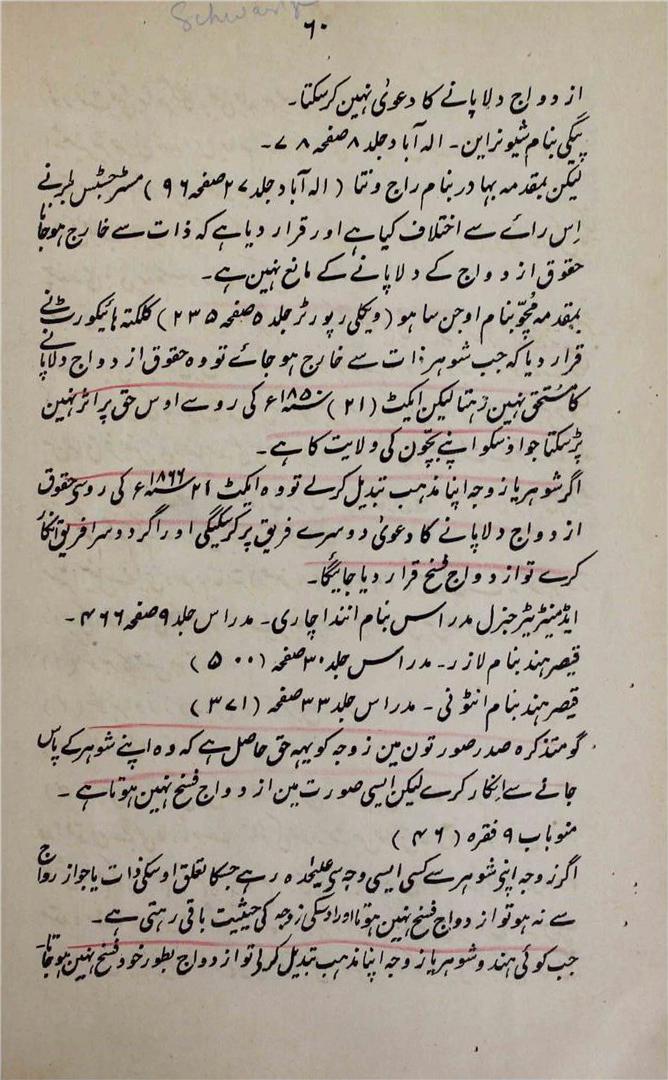 Schwartz
۶۰
ازدواج دلاپانے کا دعویٰ نہین کرسکتا۔
پیگی بنام شیونراین۔ الہ آباد جلد ۸ صفحہ ۷۸۔
لیکن بمقدمہ بہادر بنام راج ونتا (الہ آباد جلد ۲۷ صفحہ ۹۶) مسٹر جسٹس نے
اِس رائے سے اختلاف کیا ہے اور قرار دیا ہے کہ ذات سے خارج ہوجانا
حقوق ازدواج کے دلاپانے کے مانع نہین ہے۔
بمقدمہ مچّو بنام اوجن ساہو (ویکلی رپورٹر جلد ۵ صفحہ ۲۳۵) کلکتہ ہائیکورٹ نے
قرار دیا کہ جب شوہر ذات سے خارج ہو جائے تو وہ حقوق ازدواج دلاپانے
کا مستحق نہین رہتا لیکن ایکٹ (۲۱) سنہ ۱۸۵۰ء کی روسے اوس حق پر اثر نہین
پڑسکتا جو اوسکو اپنے بچّون کی ولایت کا ہے۔
اگر شوہر یا زوجہ اپنا مذہب تبدیل کرلے تو وہ ایکٹ ۲۱ سنہ ۱۸۶۶ء کی روسی حقوق
ازدواج دلاپانے کا دعویٰ دوسرے فریق پر کرسکیگی اور اگر دوسرا فریق انکار
کرے تو ازدواج فسخ قرار دیا جائیگا۔
ایڈمنسٹریٹر جنرل مدراس بنام انندا چاری۔ مدراس جلد ۹ صفحہ ۴۶۶۔
قیصر ہند بنام لازر۔ مدراس جلد ۳۰ صفحہ (۵۰۰)
قیصر ہند بنام انٹونی۔ مدراس جلد ۳۳ صفحہ (۳۷۱)
گو متذکرہ صدر صورتون مین زوجہ کو یہہ حق حاصل ہے کہ وہ اپنے شوہر کے پاس
جانے سے انکار کرے لیکن ایسی صورت مین ازدواج فسخ نہین ہوتا ہے۔
منو باب ۹ فقرہ (۴۶)
اگر زوجہ اپنی شوہر سے کسی ایسی وجہ سی علیحدہ رہے جسکا تعلق اوسکی ذات یا جواز رواج
سے نہ ہو تو ازدواج فسخ نہین ہوتا اور اوسکی زوجہ کی حیثیت باقی رہتی ہے۔
جب کوئی ہندو شوہر یا زوجہ اپنا مذہب تبدیل کرلی تو ازدواج بطور خود فسخ نہین ہوجاتا۔